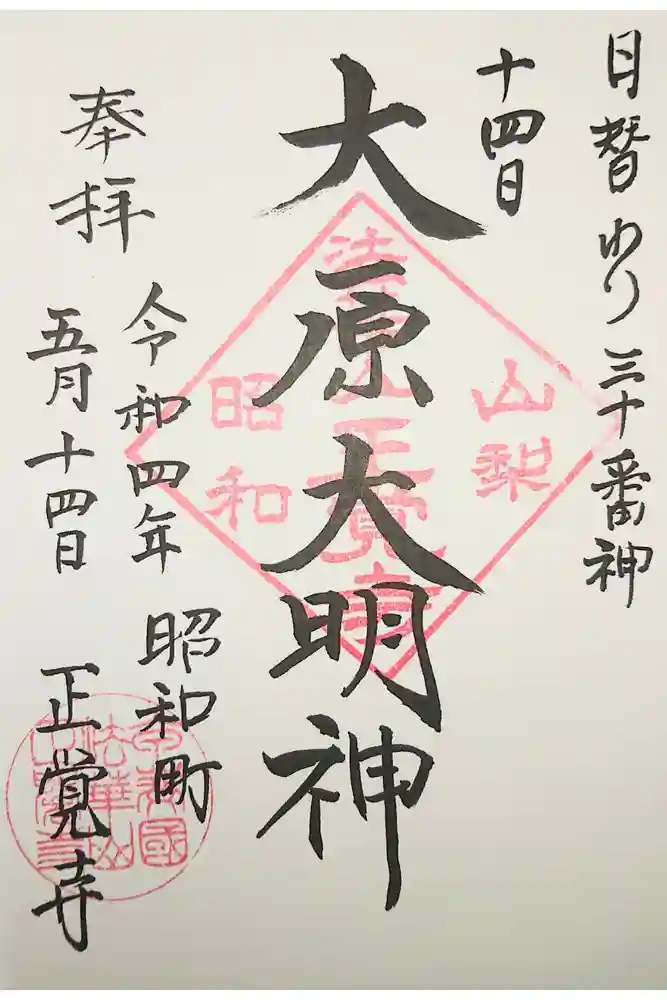 日替わり三十番神
十四日
大原大明神
奉拝
令和四年
五月十四日
昭和町
正覚寺
山梨
昭和